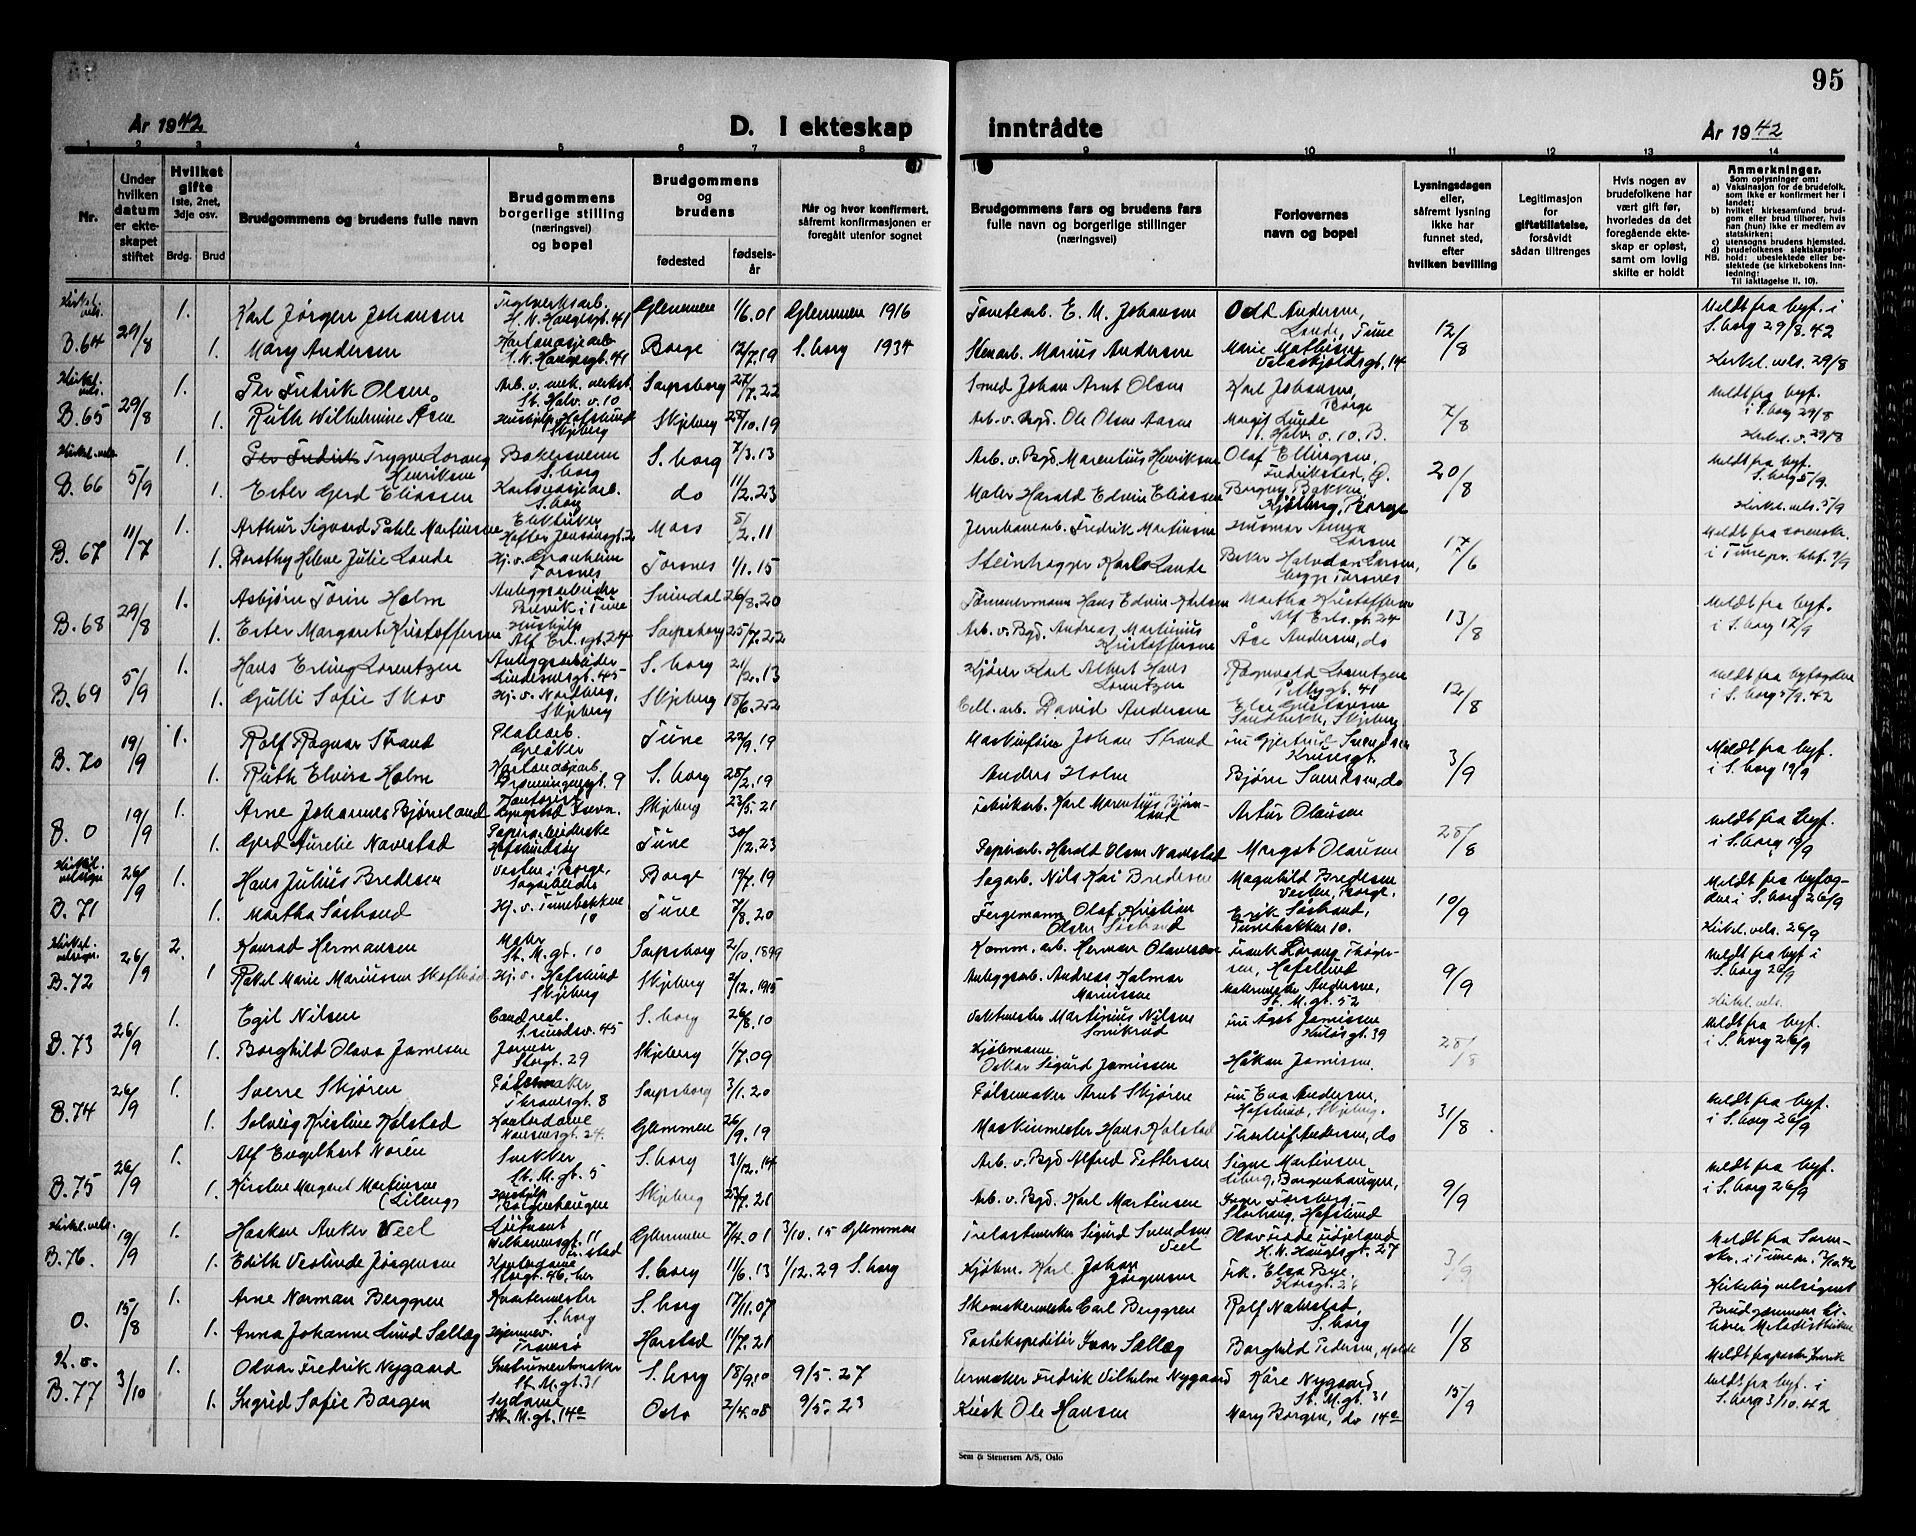 95
År 1942
D. I ekteskap inntrådte
År 1942
1 2 3 4 5 6 7 8 9 10 11 12 13 14
Nr.
Under hvilken datum er ekteskapet stiftet
Hvilket gifte 1ste, 2net, 3dje osv.
Brdg. Brud
Brudgommens og brudens fulle navn
Brudgommens borgerlige stilling (næringsvei) og bopel
Brudgommens og brudens
fødested
fødselsår
Når og hvor konfirmert, såfremt konfirmasjonen er foregått utenfor sognet
Brudgommens fars og brudens fars fulle navn og borgerlige stillinger (næringsvei)
Forlovernes navn og bopel
Lysningsdagen eller, såfremt lysning ikke har funnet sted, efter hvilken bevilling
Legitimasjon for giftetillatelse, forsåvidt sådan tiltrenges
Hvis nogen av brudefolkene har vært gift før, hvorledes da det foregående ekteskap er opløst, samt om lovlig skifte er holdt
Anmerkninger.
Som oplysninger om:
a) Vaksinasjon for de brudefolk, som ikke er konfirmert her i landet;
b) hvilket kirkesamfund brudgom eller brud tilhører, hvis han (hun) ikke er medlem av statskirken;
c) utensogns brudens hjemsted.
d) brudefolkenes slektskapsforhold: ubeslektede eller beslektede (se kirkebokens innledning:
NB. Til iakttagelse II. 10).
B. 64 29/8 1. Karl Jørgen Johansen H. N. Haugesgt. 41 Glemmen 1/6.01 Glemmen 1916 Tomtearb. E. M. Johansen Odd Andersen, Lande, Tune 12/8 Meldt fra byf. i S.borg 29/8.42
1. Mary Andersen H. N. Haugesgt. 41 Borge 12/7.19 S.borg 1934 Stenarb. Marius Andersen Marie Mathisen 14 Kirkel. vels. 29/8
B. 65 29/8 1. Per Fredrik Olsen Arb. v. mek. verkst. St. Halv. v. 10 Sarpsborg 27/7.22 Smed Johan Arnt Olsen Karl Johansen, Borge 7/8 Meldt fra byf. i S.borg 29/8
1. Ruth Wilhelmine Åsen Hushjelp Hafslund Skjeberg Skjeberg 28/10.19 Arb. v. Bgd. Ole Olsen Aasen Margit Lunde St. Halv. v. 10. B. Kirkel. v. 29/8
B. 66 5/9 1. Per Fredrik Trygve Lorang Henriksen Bakersvenn S.borg S.borg 7/3.13 Arb. v. Bgd. Marentius Henriksen Olaf Ellingsen, Fredrikstad, Ø. 20/8 Meldt fra byf. S.borg 5/9.
1. Ester Gerd Eliassen Kartonasjearb. S.borg do 11/2.23 Maler Harald Edvin Eliassen Borgny Bakken, Kjølberg, Borge Kirkel. vels. 5/9
B. 67 11/7 1. Arthur Sigvard Pahle Martinsen Elektriker Moss 5/2.11 Jernbanearb. Fredrik Martinsen Husmor Anna Larsen 17/6 Meldt fra sorenskr. i Tune
1. Dorothy Helene Julie Lande Hj. v. Granheim Torsnes Torsnes 1/1.15 Steinhogger Karlo Lande Baker Halvdan Larsen, begge Torsnes
B. 68 29/8 1. Asbjørn Torin Holm Anleggsarbeider i Tune Svindal 26/8.20 Tømmermann Hans Edvin Karlsen Martha Kristoffersen Alf Erl.sgt. 24 13/8 Meldt fra byf. i S.borg 17/9
1. Ester Margaret Kristoffersen Hushjelp Alf Erl.sgt. 24 Sarpsborg 25/7.22 Arb. v. Bgd. Andreas Martinius Kristoffersen Åse Andersen, do
B. 69 5/9 1. Hans Erling Lorentzen Anleggsarbeider 45 S.borg 21/2.13 Kjører Karl Albert Hans Lorentzen Ragnvald Lorentzen 41 12/8 Meldt fra byfogden i S.borg 5/9.42
1. Gulli Sofie Skov Hj. v. Nordberg, Skjeberg Skjeberg 18/6.22 Cell. arb. David Andersen Else Gustavsen Skjeberg
B. 70 19/9 1. Rolf Ragnar Strand Platearb. Greåker Tune 22/9.19 Maskinfører Johan Strand fru Gjertrud Svendsen 3/9 Meldt fra byf. i S.borg 19/9
1. Ruth Elvira Holm Kartonasjearb. Dronningensgt. 9 S.borg 28/2.19 Anders Holm Bjørn Svendsen, do
O 19/9 1. Arne Johannes Bjørneland Kontorist Skjeberg 23/5.21 Fabrikarb. Karl Marentius Bjørneland Artur Olausen 28/8 Meldt fra byf. i S.borg 19/9
1. Gerd Aurelie Navestad Papirarbeiderske Hafslundsøy Tune 30/12.23 Papirarb. Harald Olsen Navestad Margot Olausen
B. 71 26/9 1. Hans Julius Bredesen i Borge, Sagarbeider Borge 19/7.19 Sagarb. Nils Kai Bredesen Magnhild Bredesen Borge. 10/9 Meldt fra byfogden i S.borg 26/9
1. Martha Söstrand Hj. v. Tunebakken 10 Tune 7/8.20 Fergemann Olaf Kristian Olsen Söstrand Erik Söstrand, Tunebakken 10. Kirkel. vels. 26/9
B. 72 26/9 2. Konrad Hermansen Maler St. M. gt. 10 Sarpsborg 2/10.1899 Komm. arb. Herman Olavesen Frank Lorang Thøgersen, Hafslund 9/9 Meldt fra byf i S.borg 26/9
1 Rakel Marie Mariussen Hj. v. Hafslund Skjeberg Skjeberg 2/12.1915 Anleggsarb. Andreas Kalmar Mariussen Malermester Andersen, St. M. gt. 52 Kirkel. vels.
B. 73 26/9 1. Egil Nilsen Cand. real. 45 S.borg 26/8.10 Vaktmester Martinius Nilsen fru Ågot Jamissen 39 28/8 Meldt fra byf. i S.borg 26/9
1. Borghild Olava Jamesen Storgt. 29 Skjeberg 1/7.09 Kjøbmann Oskar Sigurd Jamissen Håkon Jamissen.
B. 74 26/9 1. Sverre Skjøren Pølsemaker 8 Sarpsborg 3/1.20 Pølsemaker Arnt Skjøren fru Eva Andersen, Hafslund, Skjeberg. 31/8 Meldt fra byf. i S.borg 26/9
1. Solveig Kristine Kolstad Kontordame Nansensgt. 24. Glemmen 26/9.19 Maskinmester Hans Kolstad Thorleif Andersen, do
B. 75 26/9 1. Alf Engelhart Norén Snekker St. M. gt. 5 S.borg 31/12.14 Arb. v. Bgd Alfred Pettersen Signe Martinsen, Borgenhaugen, 9/9 Meldt fra byf. i S.borg 26/9
1. Kirsten Margret Martinsen (Lileng) Hushjelp Borgenhaugen Skjeberg 27/7.21 Arb. v. Bgd. Karl Martinsen Inger Torsberg, Hafslund
Kirkel. vels. B. 76. 19/9 1. Haakon Anker Veel Løitnant 11 Fr.stad Glemmen 7/4.01 3/10.15 Glemmen Trelastmerker Sigurd Svendsen Veel H. N. Haugesgt. 27 3/9 Meldt fra Sorenskr. i Tune
1. Edith Veslinde Jørgensen Kontordame Storgt. 46, her S.borg 11/6.13 1/12.29 S.borg Kjøbm. Karl Johan Jørgensen Frk. Elsa Bye. Kirkelig velsignet
O. 15/8 1. Arne Norman Berggren S.borg S.borg 17/11.07 Skomakermester Carl Berggren Rolf Naketad, S.borg 1/8 Brudgommen tilhører Metodistkirken
1. Anna Johanne Lund Sellæg Hjemmev. Tromsø Harstad 11/7.21 Postekspeditør Ivar Sellæg Borghild Pedersen, Molde
K. v. B. 77 3/10 1. Odvar Fredrik Nygaard Instrumentmaker St. M. gt. 31 S.borg 18/9.10 9/5.27 Urmaker Fredrik Vilhelm Nygaard Kåre Nygaard St. M. gt. 31 15/9 Meldt fra byf. i S.borg 3/10.42
1. Ingrid Sofie Borgen Sydame St. M. gt. 14c Oslo 2/4.08 9/5.23 Kusk Ole Hansen Mary Borgen, do 14c
Sem & Stenersen A/S, Oslo